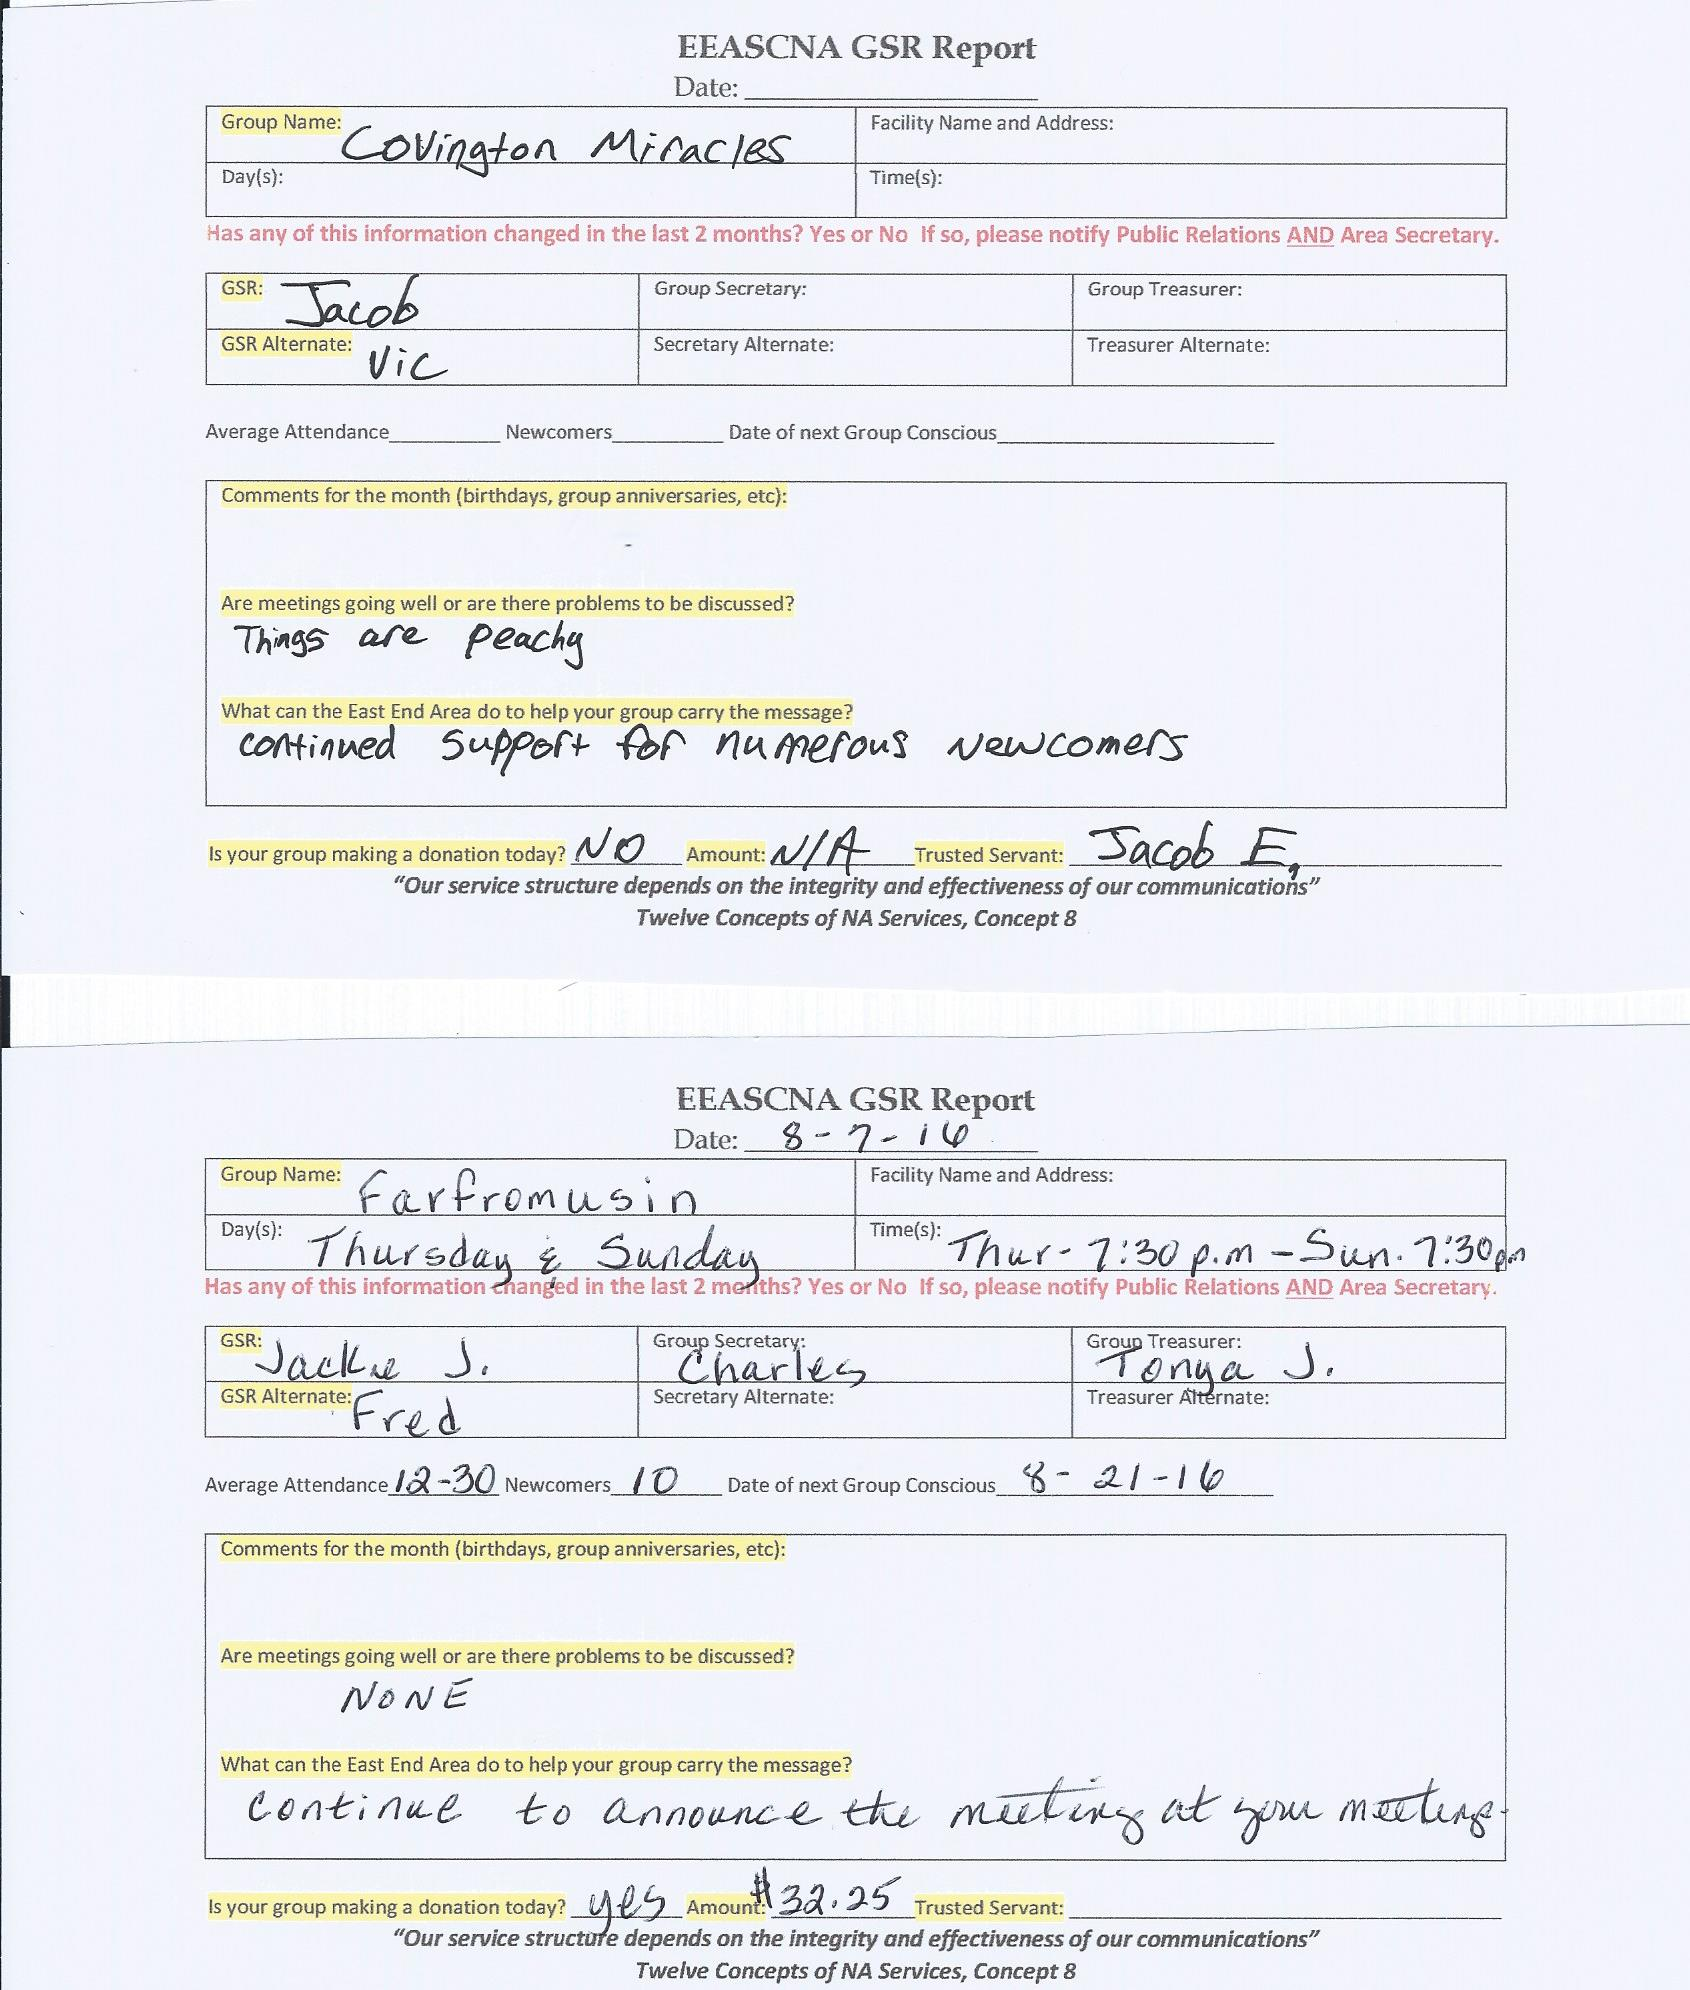 EEASCNA GSR Report
Date:
Group Name: Covington Miracles Facility Name and Address:
Day(s): Time(s):
Has any of this information changed in the last 2 months? Yes or No If so, please notify Public Relations AND Area Secretary.
GSR: Jacob Group Secretary: Group Treasurer:
GSR Alternate: Vic Secretary Alternate: Treasurer Alternate:
Average Attendance Newcomers Date of next Group Conscious
Comments for the month (birthdays, group anniversaries, etc):
Are meetings going well or are there problems to be discussed?
Things are peachy
What can the East End Area do to help your group carry the message?
continued support for numerous Newcomers
Is your group making a donation today? NO Amount: N/A Trusted Servant: Jacob E.
"Our service structure depends on the integrity and effectiveness of our communications"
Twelve Concepts of NA Services, Concept 8
EEASCNA GSR Report
Date: 8-7-16
Group Name: Farfromusin Facility Name and Address:
Day(s): Thursday & Sunday Time(s): Thur- 7:30 p.m - Sun. 7:30pm
Has any of this information changed in the last 2 months? Yes or No If so, please notify Public Relations AND Area Secretary.
GSR: Jackie J. Group Secretary: Charles Group Treasurer: Tonya J.
GSR Alternate: Fred Secretary Alternate: Treasurer Alternate:
Average Attendance 12-30 Newcomers 10 Date of next Group Conscious 8-21-16
Comments for the month (birthdays, group anniversaries, etc):
Are meetings going well or are there problems to be discussed?
NONE
What can the East End Area do to help your group carry the message?
Continue to announce the meeting at your meetings.
Is your group making a donation today? yes Amount: $32.25 Trusted Servant:
"Our service structure depends on the integrity and effectiveness of our communications"
Twelve Concepts of NA Services, Concept 8